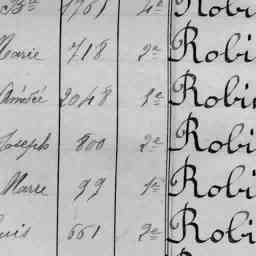 Bte 1761 4e Robi
Marie 718 2e Robi
Amédée 2048 1e Robi
Joseph 800 2e Robi
Marie 99 1e Robi
uis 661 2e Robi